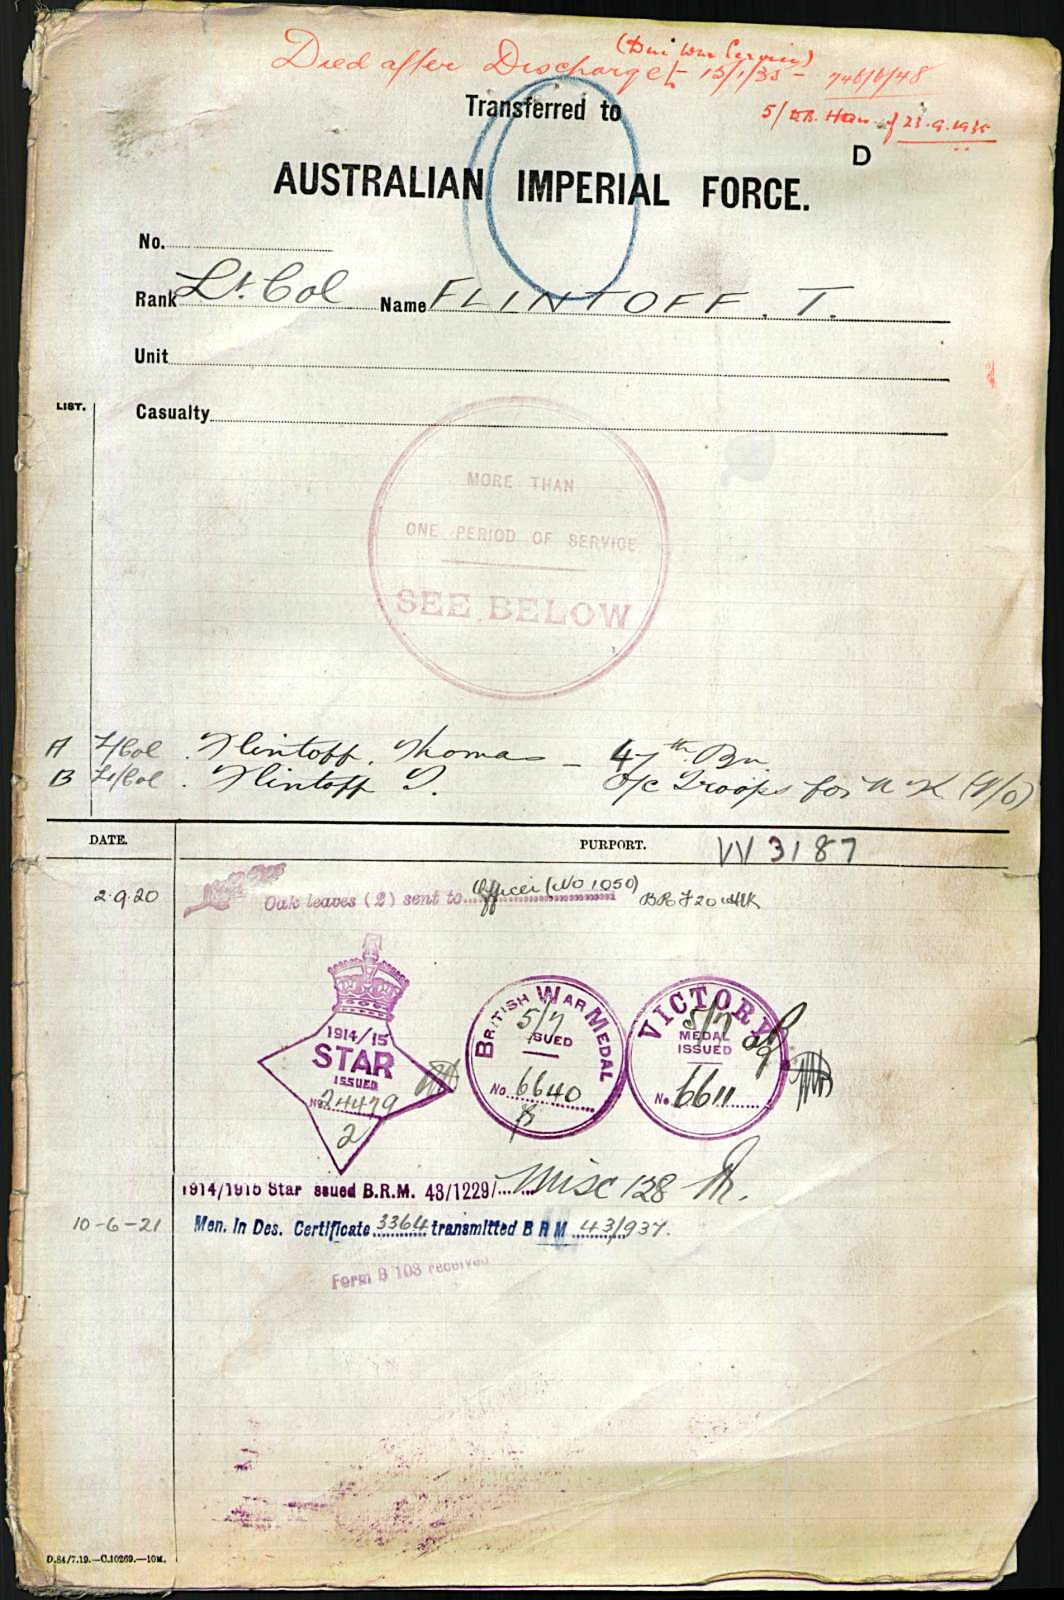 (Due War Service)
Died after Discharge 15/1/35 - 746/6/48
5/ of 23.9.1935
Transferred to
D
AUSTRALIAN IMPERIAL FORCE.
No.
Rank Lt. Col Name FLINTOFF. T.
Unit
LIST.
Casualty
MORE THAN
ONE PERIOD OF SERVICE
SEE BELOW
A L/Col. Flintoff, Thomas - 47th Bn
B Lt/Col. Flintoff T. O/c Troops for U K
DATE. PURPORT. W 3187
2.9.20 Oak leaves (2) sent to Officer (No 1050)
1914/15
STAR
ISSUED
No. 24479
2
BRITISH WAR MEDAL
5/7
ISSUED
No. 6640
VICTORY
5/7
MEDAL
ISSUED
No. 6611
1914/1915 Star issued B.R.M. 43/1229/ Misc 128
10-6-21 Men. In Des. Certificate 3364 transmitted B R M 43/937.
Form B 103 received
D.84/7.19.—C.10269.—10M.